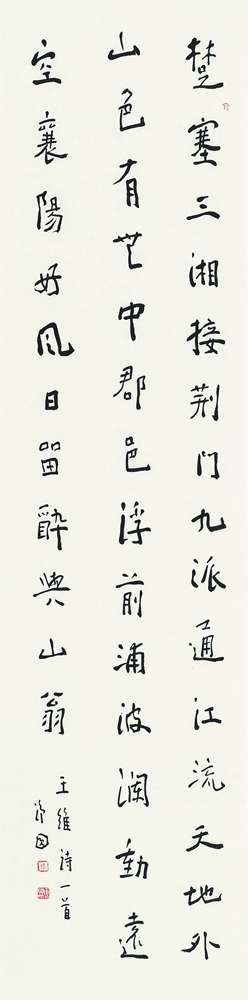 楚塞三湘接荆门九派通江流天地外
山色有無中郡邑浮前浦波瀾動遠
空襄陽好風日留醉與山翁
王維詩一首